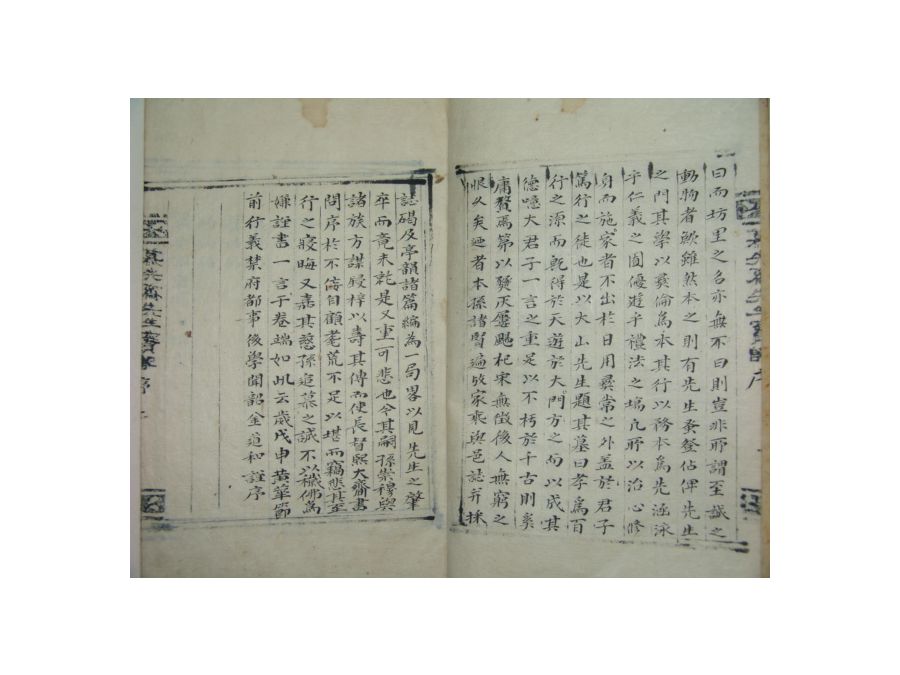 曰而坊里之名亦無不曰則豈非耶謂至誠之
動物者歟雖然本之則有先生蚤登佔俾先生
之門其學以彛倫為本其行以務本為先涵泳
乎仁義之囿優遊乎禮法之場凢所以治心修
身而施家者不出於日用彛常之外盖於君子
篤行之徒也是以大山先生題其墓曰孝為百
行之源而旣得於天遊於大門方之而以成其
德噫大君子一言之重足以不朽於千古則奚
庸贅焉第以 灰 飈杞宋無徵後人無窮之
恨久矣廼者本孫諸賢遍攷家乘與邑誌并採
誌碣及亭韻諸篇編為一局畧以見先生之肇
卒而竟未就是又重可悲也今其嗣孫崇穆與
諸族方謀寝梓以壽其傳而使長督熙大齋書
問序於不佞自顧耄荒不足以堪而竊悲其至
行之寢晦又嘉其慈孫追慕之誠不以穢佛為
嫌謹書一言于卷端如此云歲戊申黄華節
前行義禁府都事後學聞韶金道和謹序
慕先齋先生實 序